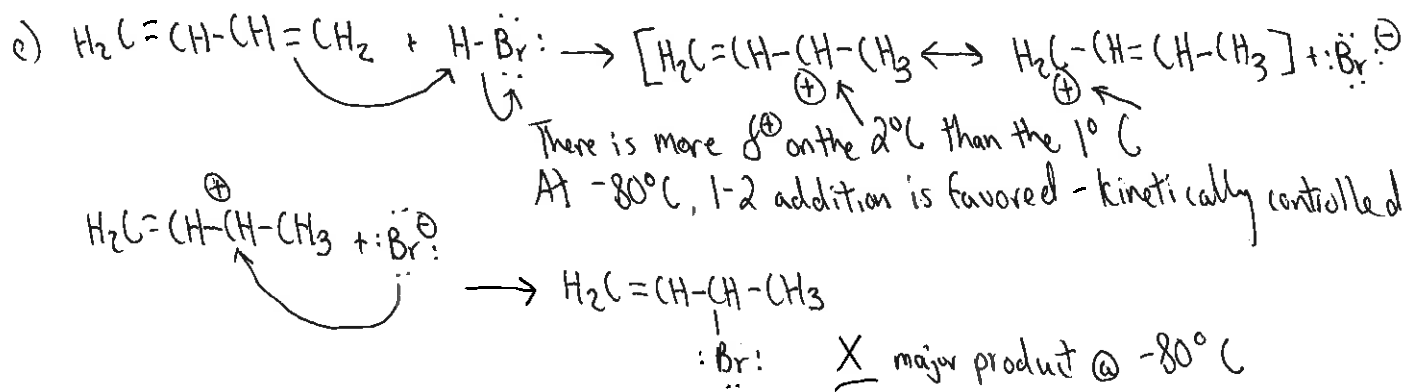 c) H₂C=CH-CH=CH₂ + H-Br: → [H₂C=CH-CH-CH₃ ↔ H₂C-CH=CH-CH₃] + :Br:⊖
⊕ ⊕
There is more δ⊕ on the 2°C than the 1° C
At -80°C, 1-2 addition is favored - kinetically controlled
⊕
H₂C=CH-CH-CH₃ + :Br:⊖
→ H₂C=CH-CH-CH₃
:Br: X major product @ -80°C